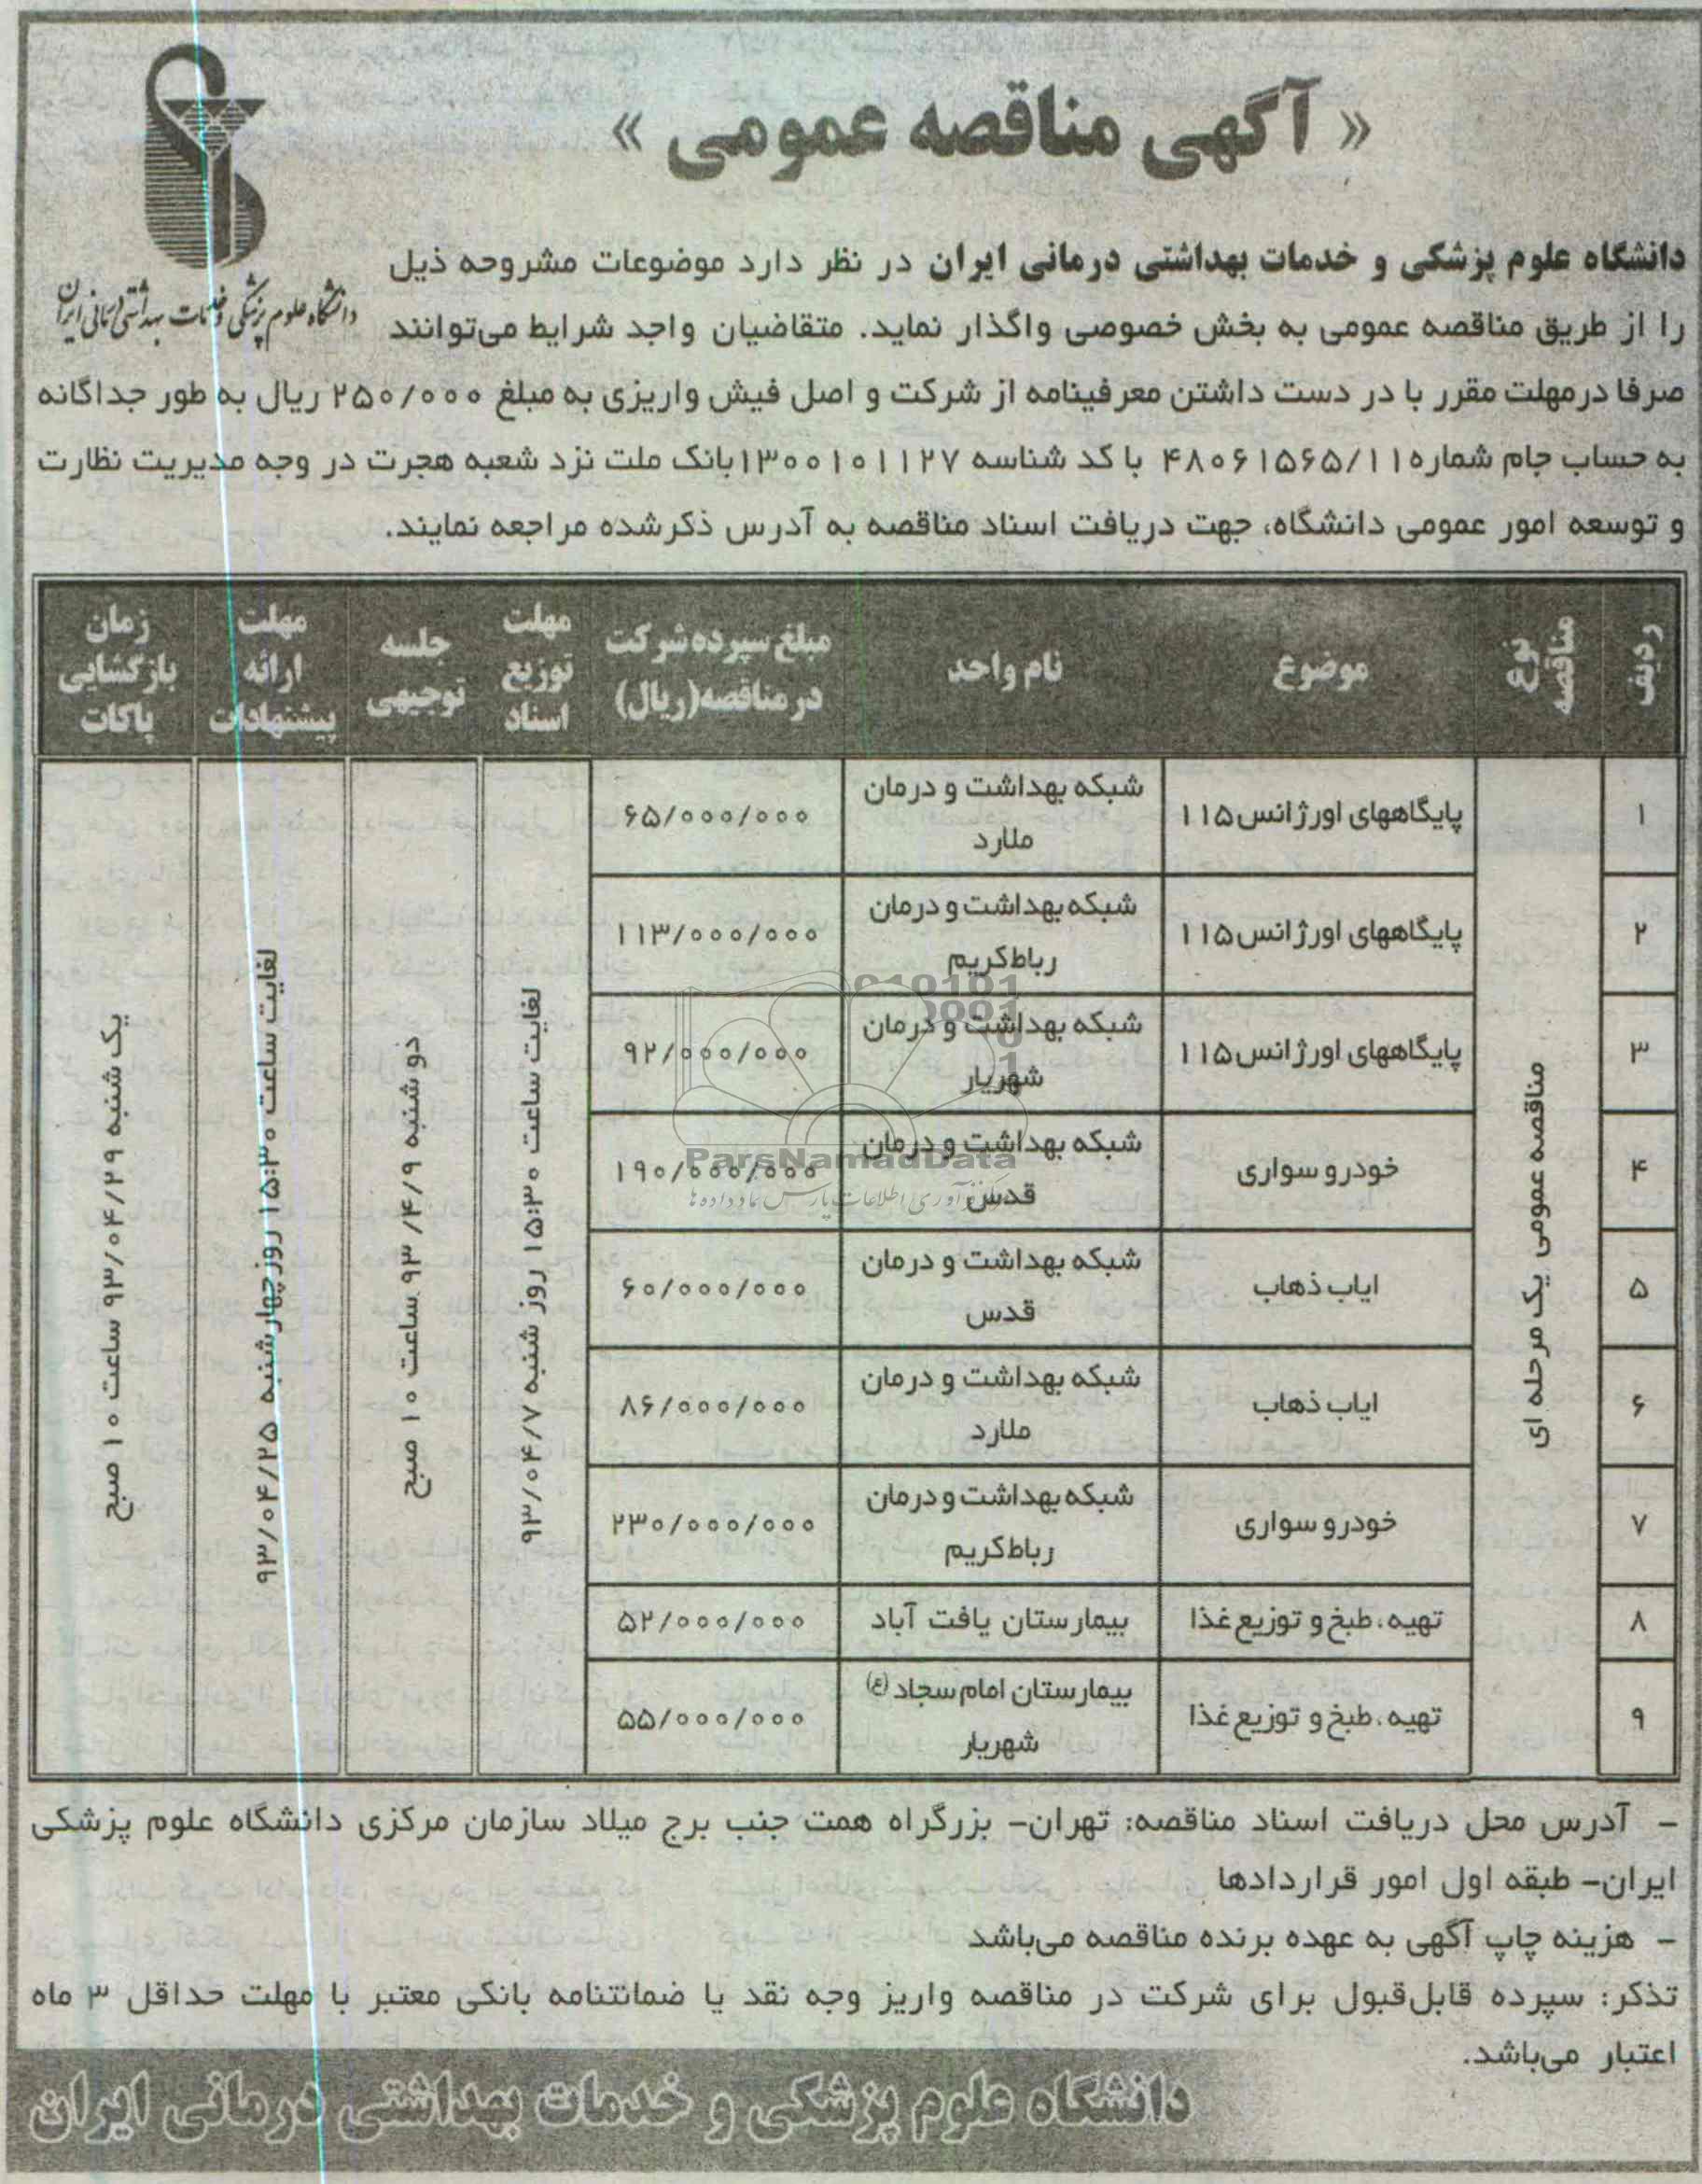 « آگهی مناقصه عمومی »
دانشگاه علوم پزشکی و خدمات بهداشتی درمانی ایران
دانشگاه علوم پزشکی و خدمات بهداشتی درمانی ایران در نظر دارد موضوعات مشروحه ذیل
را از طریق مناقصه عمومی به بخش خصوصی واگذار نماید. متقاضیان واجد شرایط می‌توانند
صرفا درمهلت مقرر با در دست داشتن معرفینامه از شرکت و اصل فیش واریزی به مبلغ ۲۵۰/۰۰۰ ریال به طور جداگانه
به حساب جام شماره۴۸۰۶۱۵۶۵/۱۱ با کد شناسه ۱۳۰۰۱۰۱۱۲۷بانک ملت نزد شعبه هجرت در وجه مدیریت نظارت
و توسعه امور عمومی دانشگاه، جهت دریافت اسناد مناقصه به آدرس ذکرشده مراجعه نمایند.
ردیف
نوع مناقصه
موضوع
نام واحد
مبلغ سپرده شرکت
در مناقصه(ریال)
مهلت
توزیع
اسناد
جلسه
توجیهی
مهلت
ارائه
پیشنهادات
زمان
بازگشایی
پاکات
۱ پایگاههای اورژانس۱۱۵ شبکه بهداشت و درمان ملارد ۶۵/۰۰۰/۰۰۰
۲ پایگاههای اورژانس۱۱۵ شبکه بهداشت و درمان رباط‌کریم ۱۱۳/۰۰۰/۰۰۰
۳ پایگاههای اورژانس۱۱۵ شبکه بهداشت و درمان شهریار ۹۲/۰۰۰/۰۰۰
۴ خودرو سواری شبکه بهداشت و درمان قدس ۱۹۰/۰۰۰/۰۰۰
۵ ایاب ذهاب شبکه بهداشت و درمان قدس ۶۰/۰۰۰/۰۰۰
۶ ایاب ذهاب شبکه بهداشت و درمان ملارد ۸۶/۰۰۰/۰۰۰
۷ خودرو سواری شبکه بهداشت و درمان رباط‌کریم ۲۳۰/۰۰۰/۰۰۰
۸ تهیه، طبخ و توزیع غذا بیمارستان یافت آباد ۵۲/۰۰۰/۰۰۰
۹ تهیه، طبخ و توزیع غذا بیمارستان امام سجاد (ع) شهریار ۵۵/۰۰۰/۰۰۰
مناقصه عمومی یک مرحله ای
لغایت ساعت ۱۵:۳۰ روز شنبه ۹۳/۰۴/۷
دو شنبه ۹۳/۴/۹ ساعت ۱۰ صبح
لغایت ساعت ۱۵:۳۰ روزچهارشنبه ۹۳/۰۴/۲۵
یک شنبه ۹۳/۰۴/۲۹ ساعت ۱۰ صبح
ParsNamadData
– آدرس محل دریافت اسناد مناقصه: تهران– بزرگراه همت جنب برج میلاد سازمان مرکزی دانشگاه علوم پزشکی
ایران– طبقه اول امور قراردادها
– هزینه چاپ آگهی به عهده برنده مناقصه می‌باشد
تذکر: سپرده قابل‌قبول برای شرکت در مناقصه واریز وجه نقد یا ضمانتنامه بانکی معتبر با مهلت حداقل ۳ ماه
اعتبار می‌باشد.
دانشگاه علوم پزشکی و خدمات بهداشتی درمانی ایران